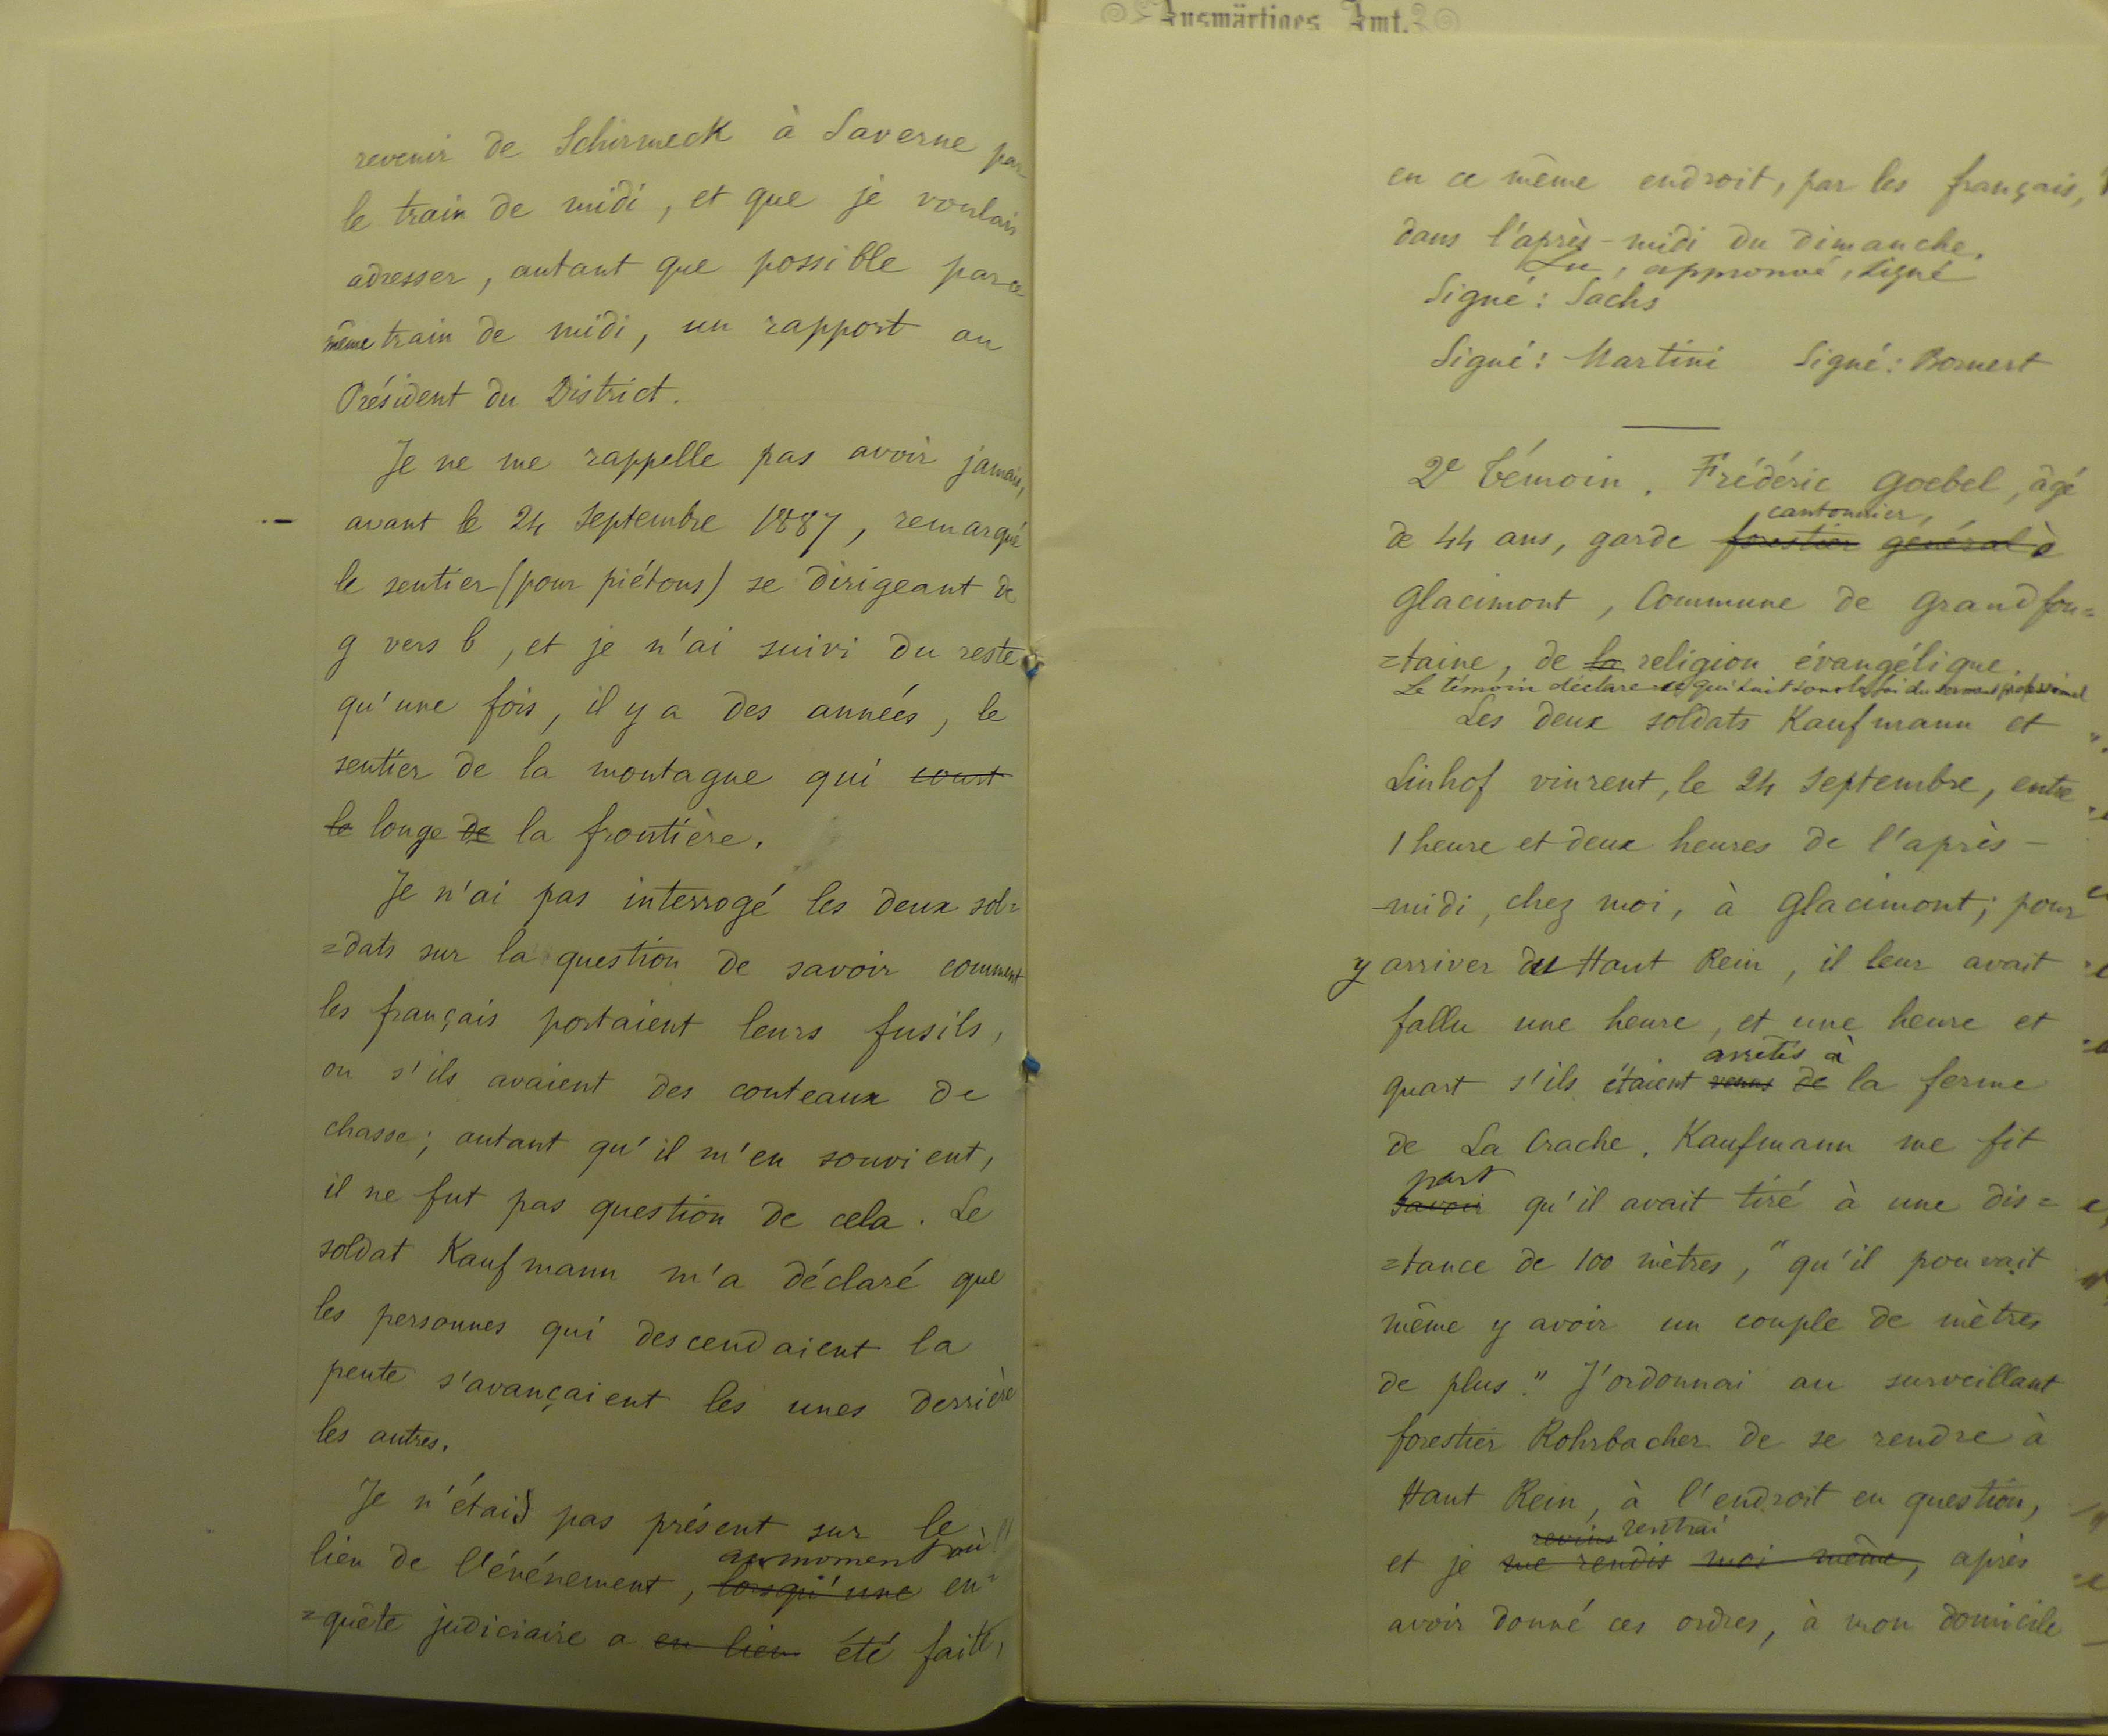 revenir de Schirmeck à Saverne par
le train de midi, et que je voulais
adresser, autant que possible par ce
même train de midi, un rapport au
Président du District.
Je ne me rappelle pas avoir jamais,
avant le 24 Septembre 1887, remarqué
le sentier (pour piétons) se dirigeant de
g vers b, et je n'ai suivi du reste
qu'une fois, il y a des années, le
sentier de la montagne qui court
le longe de la frontière.
Je n'ai pas interrogé les deux sol=
=dats sur la question de savoir comment
les français portaient leurs fusils,
ou s'ils avaient des couteaux de
chasse; autant qu'il m'en souvient,
il ne fut pas question de cela. Le
soldat Kaufmann m'a déclaré que
les personnes qui descendaient la
pente s'avançaient les unes derrière
les autres.
Je n'étais pas présent sur le
lieu de l'événement, lorsqu'une en=
au moment où
=quête judiciaire a eu lieu été faite,
Auswärtiges Amt.
en ce même endroit, par les français,
dans l'après-midi du dimanche.
Lu, approuvé, signé
Signé: Sachs
Signé: Martini Signé: Bornert
2e témoin. Frédéric Goebel, âgé
cantonnier,
de 44 ans, garde forestier général à
Glacimont, Commune de Grandfon=
=taine, de la religion évangélique.
Le témoin déclare ce qui suit sous la foi du serment professionnel
Les deux soldats Kaufmann et
Linhof vinrent, le 24 Septembre, entre
1 heure et deux heures de l'après-
-midi, chez moi, à Glacimont; pour
y arriver du Haut Rein, il leur avait
fallu une heure, et une heure et
arrêtés à
quart s'ils étaient venus de la ferme
de La Crache. Kaufmann me fit
part
savoir qu'il avait tiré à une dis=
=tance de 100 mètres, "qu'il pouvait
même y avoir un couple de mètres
de plus." J'ordonnai au surveillant
forestier Rohrbacher de se rendre à
Haut Rein, à l'endroit en question,
revins rentrai
et je me rendis moi même, après
avoir donné ces ordres, à mon domicile